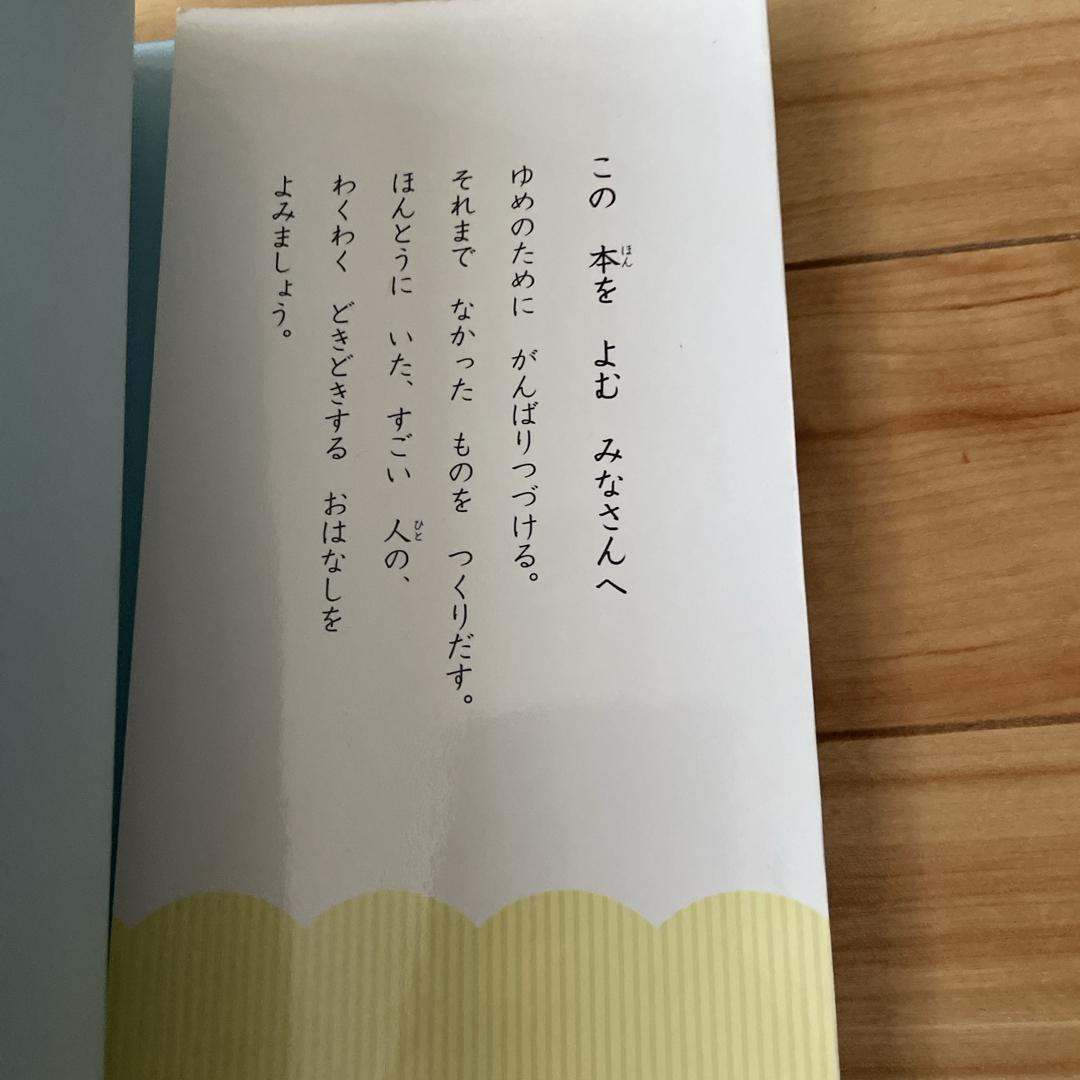 この 本を よむ みなさんへ
ゆめのために がんばりつづける。
それまで なかった ものを つくりだす。
ほんとうに いた、すごい 人の、
わくわく どきどきする おはなしを
よみましょう。